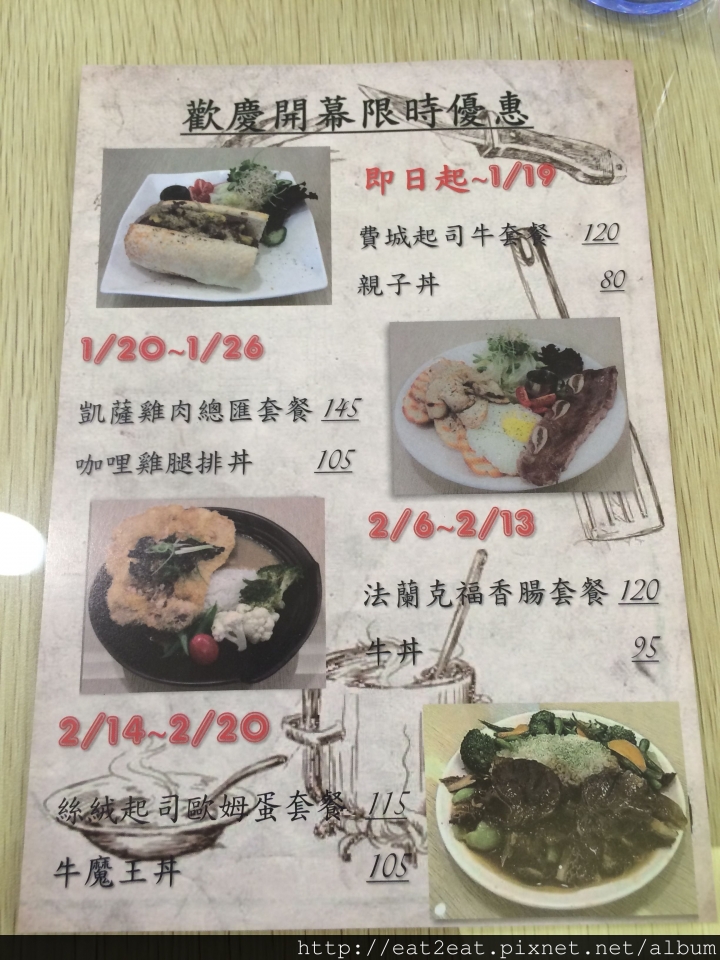 歡慶開幕限時優惠
即日起~1/19
費城起司牛套餐 120
親子丼 80
1/20~1/26
凱薩雞肉總匯套餐 145
咖哩雞腿排丼 105
2/6~2/13
法蘭克福香腸套餐 120
牛丼 95
2/14~2/20
絲絨起司歐姆蛋套餐 115
牛魔王丼 105
http://eat2eat.pixnet.net/album